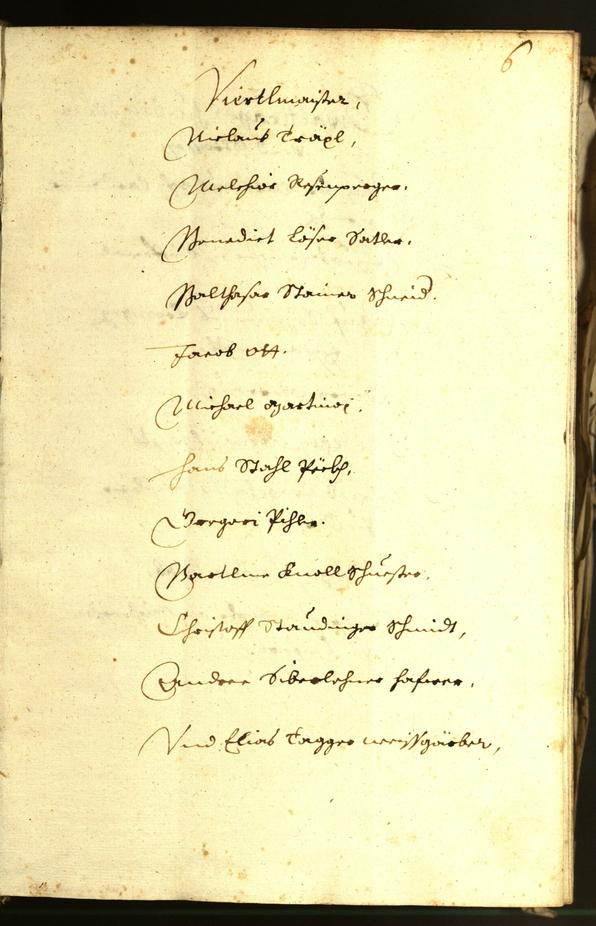 6
Viertlmaister,
Niclaus Träxl,
Melchior Resenperger.
Benedict Löser Satler.
Balthasar Stainer Schneid.
Jacob Ott.
Michael Martini.
Hans Stahl
Gregori Pihler.
Bartlme Knoll Schuester,
Christoff Staudinger Schmidt,
Andree Siberlehner Hafner,
Vnd Elias Tagger weissgärber,